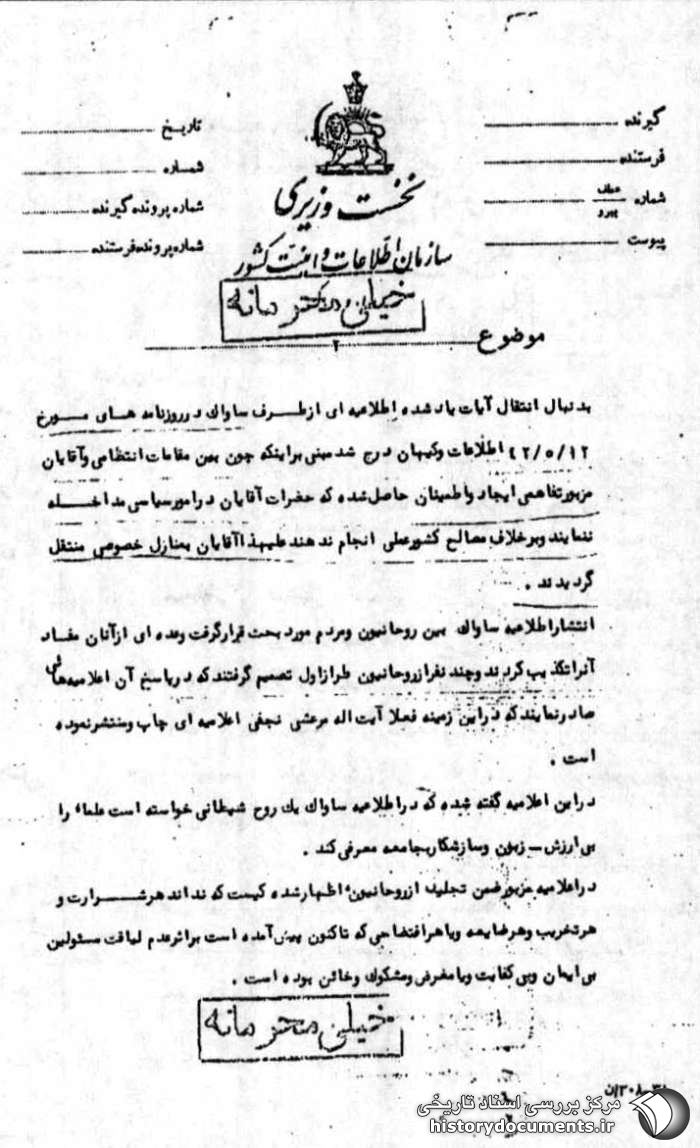 گیرنده
فرستنده
شماره عطف پیرو
پیوست
تاریخ
شماره
شماره پرونده گیرنده
شماره پرونده فرستنده
نخست وزیری
سازمان اطلاعات و امنیت کشور
خیلی محرمانه
موضوع ۲
بدنبال انتقال آیات یاد شده اطلاعیه ای از طرف ساواک در روزنامه های مورخ
۴۲/۵/۱۲ اطلاعات و کیهان درج شد مبنی براینکه چون بین مقامات انتظامی و آقایان
مزبور تفاهمی ایجاد و اطمینان حاصل شده که حضرات آقایان در امور سیاسی مداخله
ننمایند و برخلاف مصالح کشور عملی انجام ندهند علیهذا آقایان بمنازل خصوصی منتقل
گردیدند .
انتشار اطلاعیه ساواک بین روحانیون و مردم مورد بحث قرار گرفت و عده ای از آنان مفاد
آنرا تکذیب کردند و چند نفر از روحانیون طراز اول تصمیم گرفتند که در پاسخ آن اعلامیه هائی
صادر نمایند که در این زمینه فعلا آیت اله مرعشی نجفی اعلامیه ای چاپ و منتشر نموده
است .
در این اعلامیه گفته شده که در اطلاعیه ساواک یک روح شیطانی خواسته است علماء را
بی ارزش - زبون و سازشکار بجامعه معرفی کند .
در اعلامیه مزبور ضمن تجلیل از روحانیون اظهار شده کیست که نداند هر شرارت و
هر تخریب و هر ضایعه و یا هر افتضاحی که تاکنون پیش آمده است براثر عدم لیاقت مسئولین
بی ایمان و بی کفایت و یا مغرض و مشکوک و خائن بوده است .
خیلی محرمانه
مرکز بررسی اسناد تاریخی
historydocuments.ir